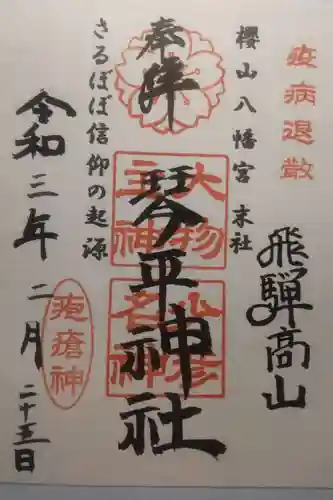 疫病退散
飛騨高山
櫻山八幡宮 末社
奉拝
大物主神
少彦名神
琴平神社
さるぼぼ信仰の起源
疱瘡神
令和三年二月二十五日